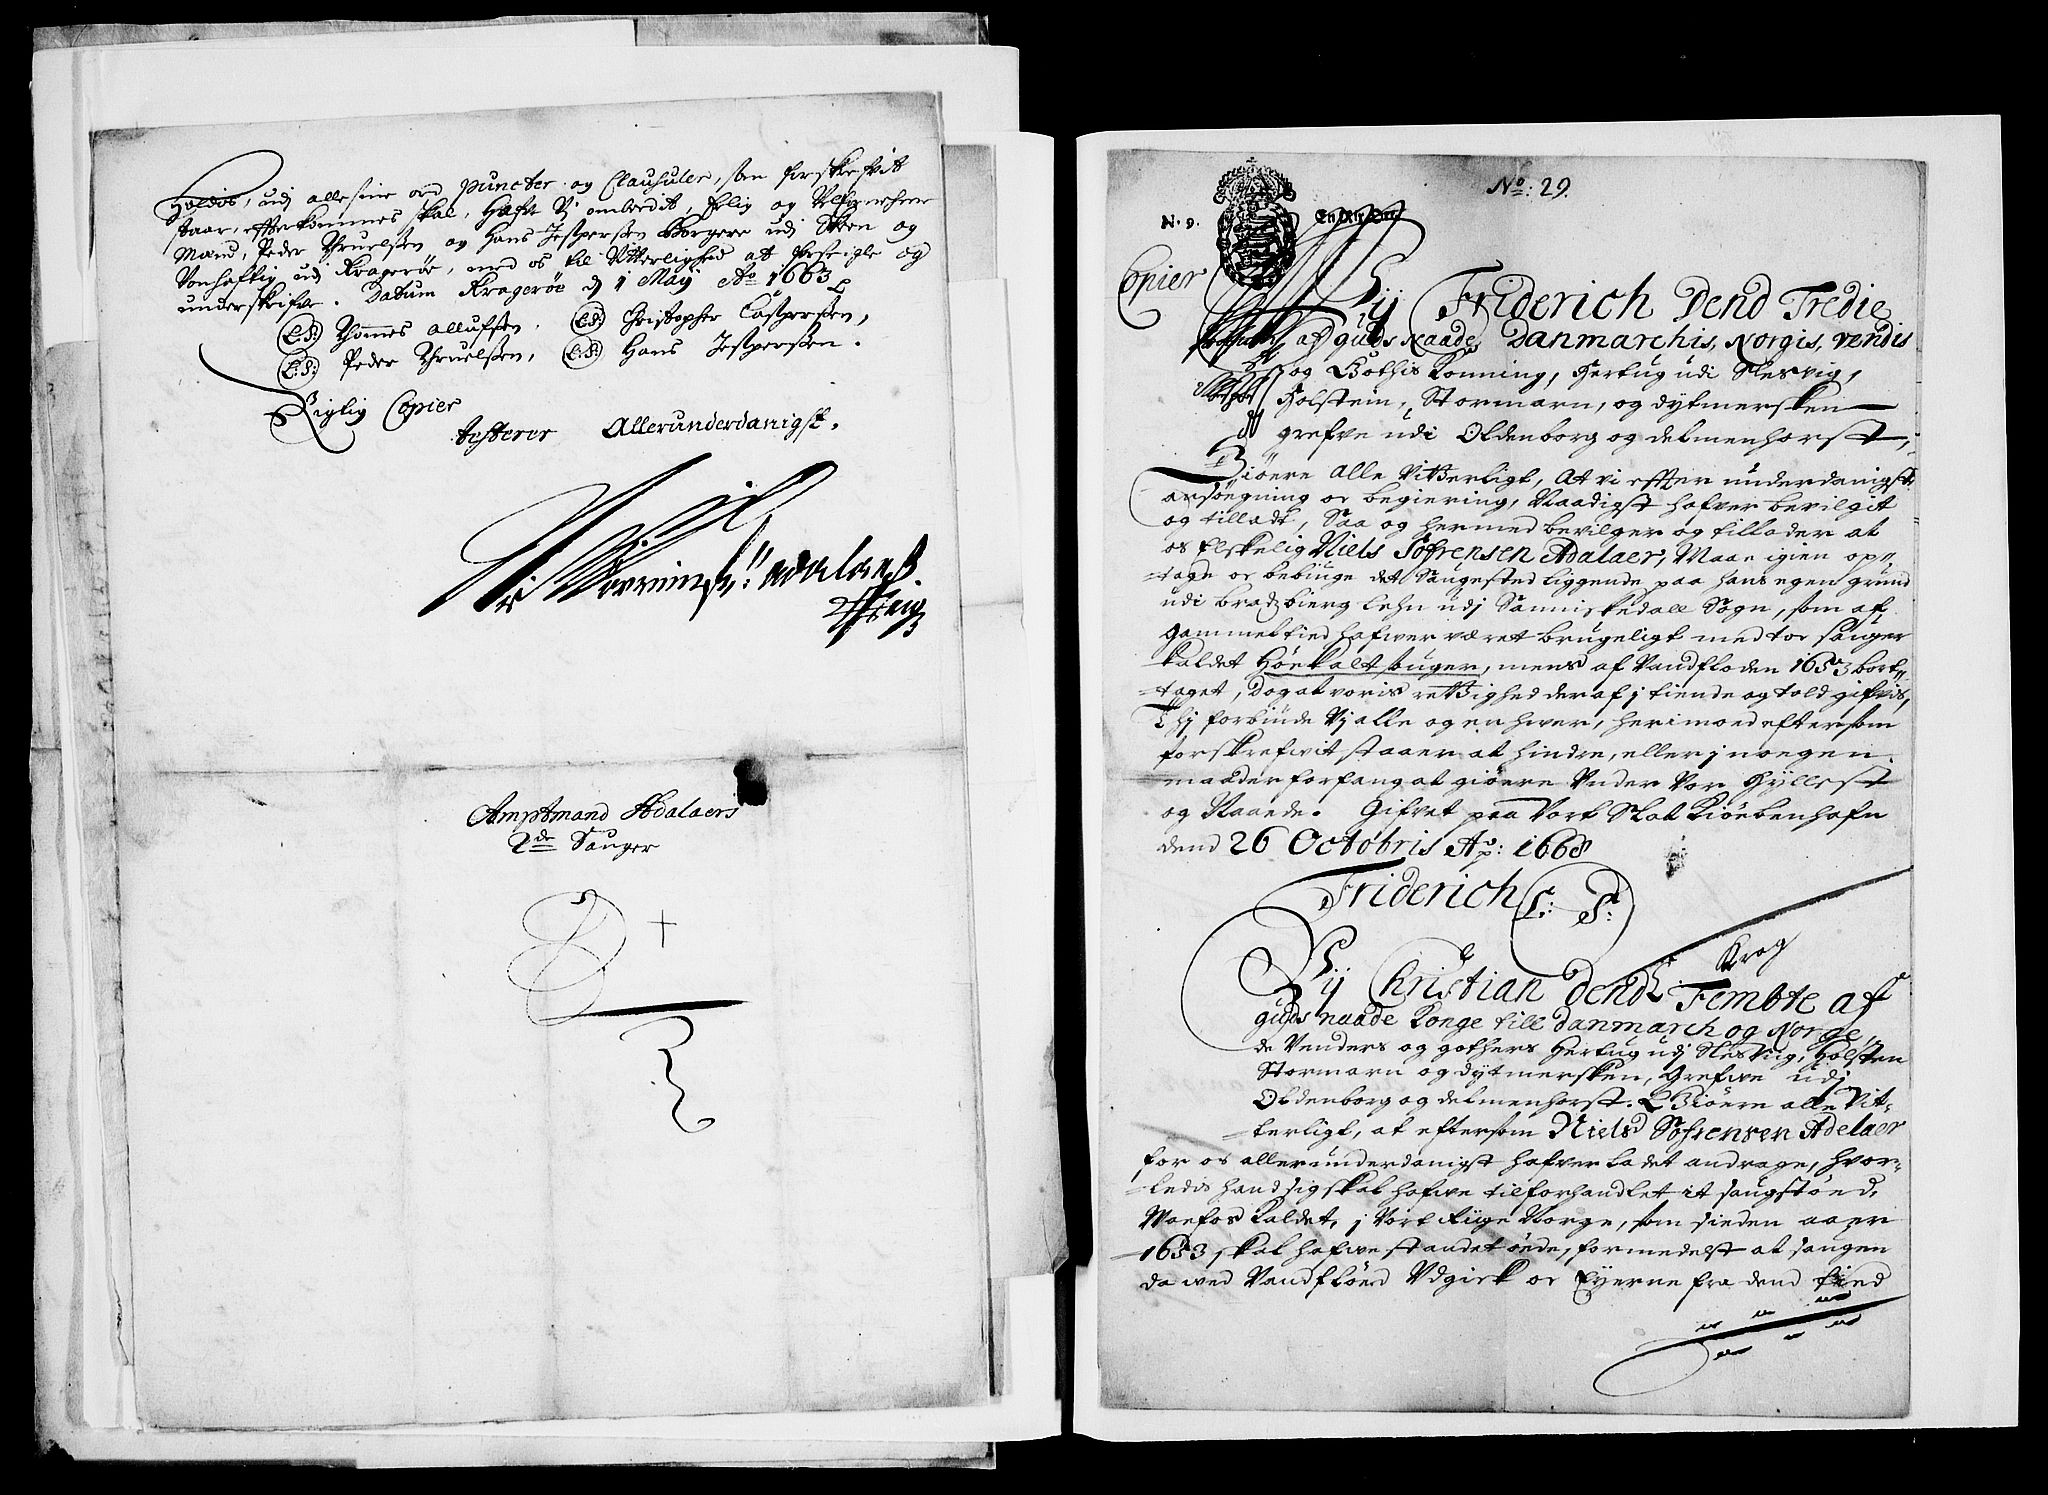 Holdis, udj alle sine ord puncter og Clausuler, som forskrefvit
staar, efterkommes skal, Hafr Vj ombedit, Erlig og Velfornehme
Mænd, Peder Thruelsen og Hans Jespersen Borgere udi Skeen og
Vonhaftig udj Kragerøe, med os til Vitterlighed at forseigle og
underskrifve. Datum Kragerøe d 1 Maij Ao 1663
(L.S.) Thommes Alluf̃sen, (L.S.) Christopher Caspersen,
(L.S.) Peder Thruelsen, (L.S.) Hans Jespersen.
Rigtig Copier
testerer Allerunderdanigst.
Amptmand Adalaers
2de Sauger
No: 29.
N. 9.
Copier
Vij Friderich Dend Tredie
af guds Naade, Danmarchis, Norgis, Vendis
og Gothis Konning, Hertug udi Slesvig,
Holstein, Stormarn, og dytmersken
grefve udi Oldenborg og delmenhorst,
Giøere Alle Vitterligt, At vi effter underdanigst
ansøegning oc begiering, Naadigst hafver bevilgit
og tilladt, Saa og hermed bevilger og tillader at
os Elskelig Niels Søfrensen Adalaer, Maae igien op„
tage oc bebüuge det Saugested liggende paa hans egen grund
udi bradzbierg lehn udj Sannikedall Sogn, som af
Gammel tied hafwer været brugeligt med toe sauger
kaldet Høekalt sauger, mens af Vandfloden 1653 bort„
taget, Dog at voris rettighed deraf j tiende og told gifvis,
Thj forbiude Vj alle og en hwer, herimoed eftersom
forskrefwit staaer at hindre, eller j noegen
maader forfang at giøere Vnder Vor Hyllest
og Naade. Gifvet paa Vort Slot Kiøebenhafn
dend 26 Octobris Ao: 1668
Friderich (L: S:)
Krag
Vij Christian Dend Fembte af
guds naade Konge till Danmarch og Norge,
de Venders og gothers Hertug udj Slesviig, Holsten
Stormarn og dytmersken, Grefwe udj
Oldenborg og delmenhorst. Giøere alle Vit„
terligt, at eftersom Niels Søfrensen Adelaer
for os allerunderdanigst hafver ladet andrage, hvor„
ledis hand sig skal hafwe tilforhandlet it saugstøed,
Moefos kaldet, j Vort Riige Norge, som sieden aaer
1653 skal hafwe standet øede, formedelst at saugen
da wed Vandfløed Vdgick oc Eyerne fra dend tied